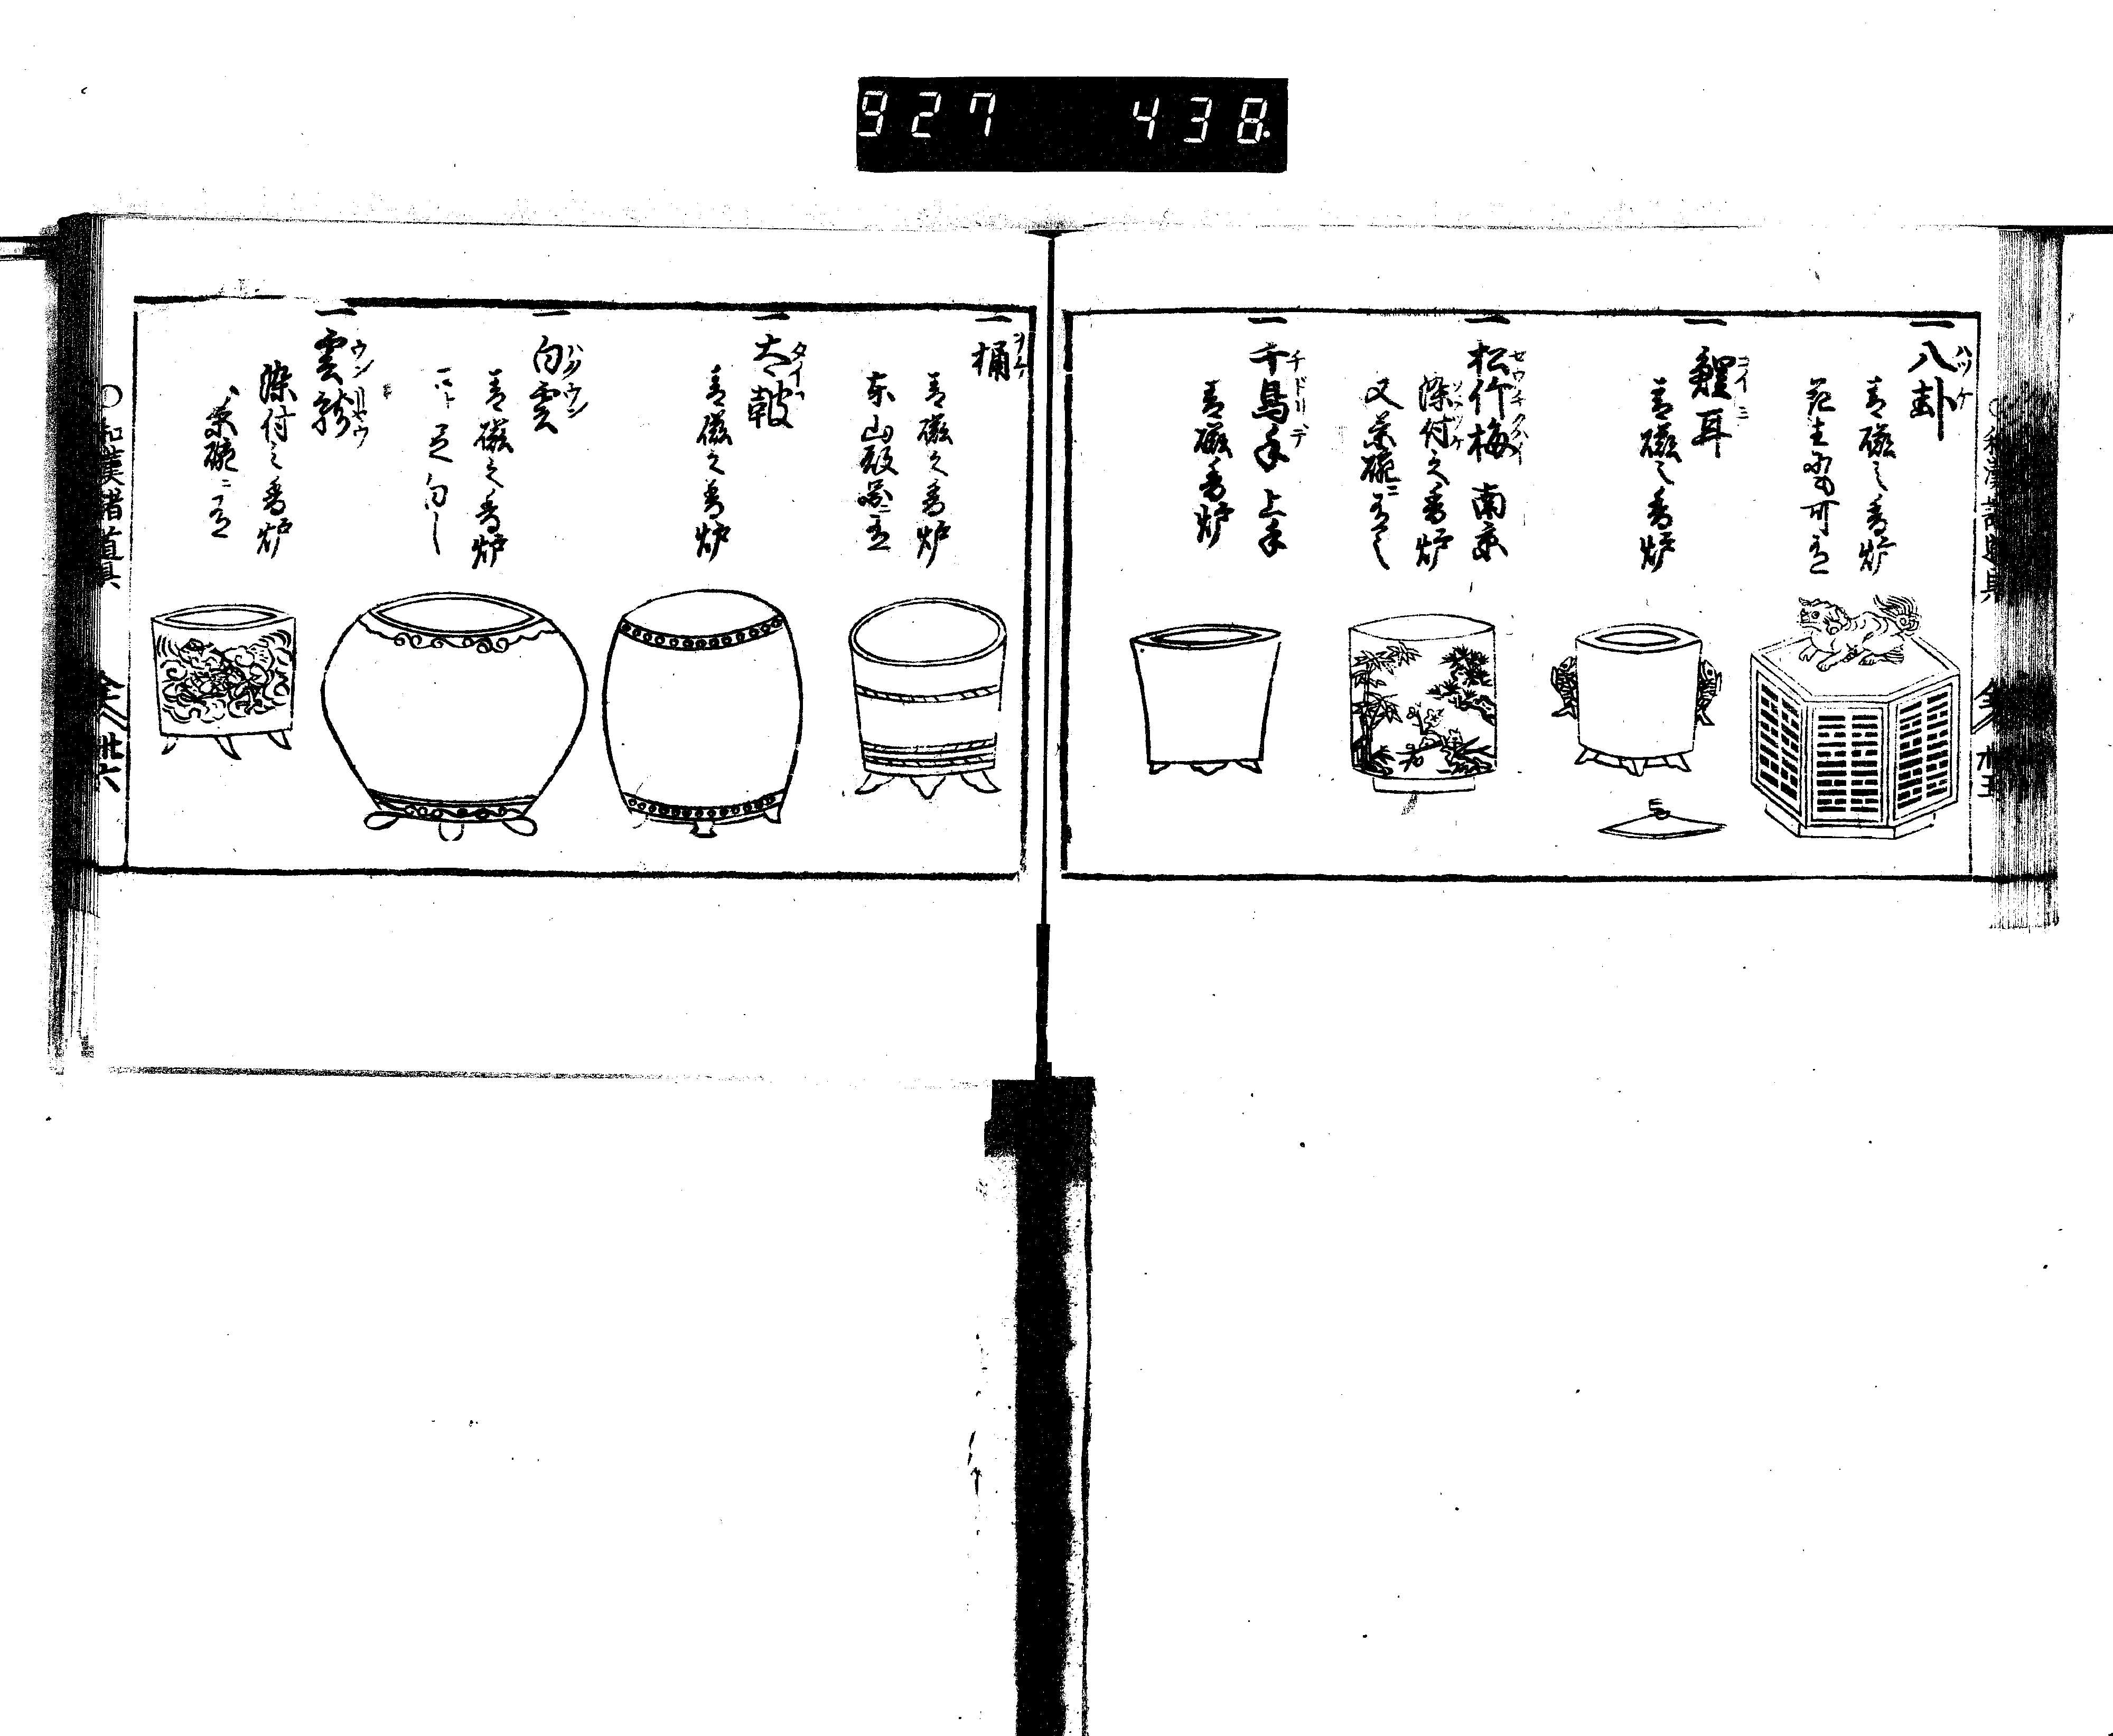 927 438
一八卦
ハツケ
青磁之香炉
一鯉耳
コイミミ
青磁之香炉
一松竹梅 南京
セウチクバイ
染付之香炉
ソメツケ
又茶碗ニ有之
一千鳥手 上手
チドリデ
青磁香炉
一桶
ヲケ
青磁之香炉
一大鼓
タイコ
青磁之香炉
一白雲
ハクウン
青磁之香炉
一雲龍
ウンリヤウ
染付之香炉
茶碗ニ有
〇和漢諸道具 全 卅六